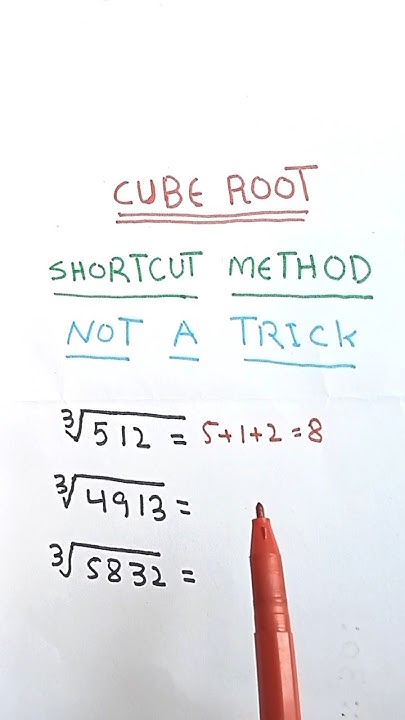 CUBE ROOT
SHORTCUT METHOD
NOT A TRICK
∛512 = 5+1+2=8
∛4913 =
∛5832 =